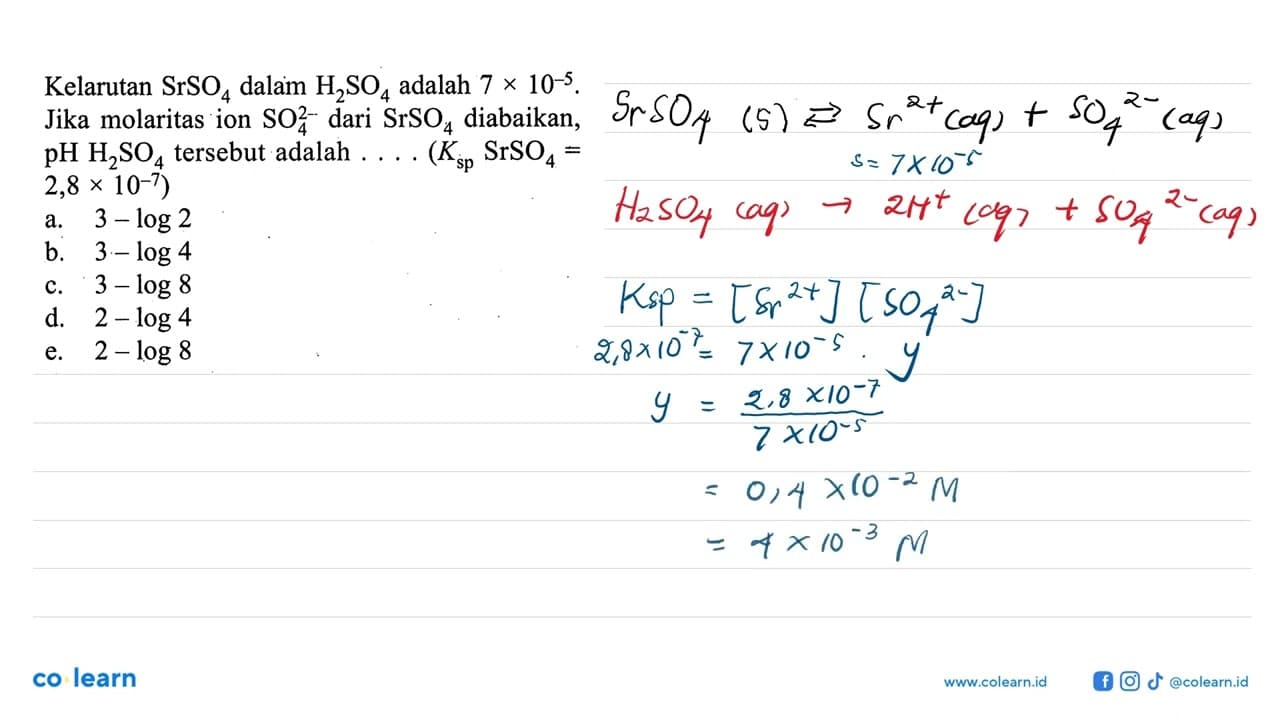 Kelarutan SrSO₄ dalam H₂SO₄ adalah 7 × 10⁻⁵.
Jika molaritas ion SO₄²⁻ dari SrSO₄ diabaikan,
pH H₂SO₄ tersebut adalah . . . . (Kₛₚ SrSO₄ =
2,8 × 10⁻⁷)
a. 3 – log 2
b. 3 – log 4
c. 3 – log 8
d. 2 – log 4
e. 2 – log 8
SrSO₄ (s) ⇌ Sr²⁺ (aq) + SO₄²⁻ (aq)
s = 7 × 10⁻⁵
H₂SO₄ (aq) → 2H⁺ (aq) + SO₄²⁻ (aq)
Ksp = [Sr²⁺] [SO₄²⁻]
2,8 × 10⁻⁷ = 7 × 10⁻⁵ . y
y = 2,8 × 10⁻⁷
7 × 10⁻⁵
= 0,4 × 10⁻² M
= 4 × 10⁻³ M
co learn
www.colearn.id
@colearn.id